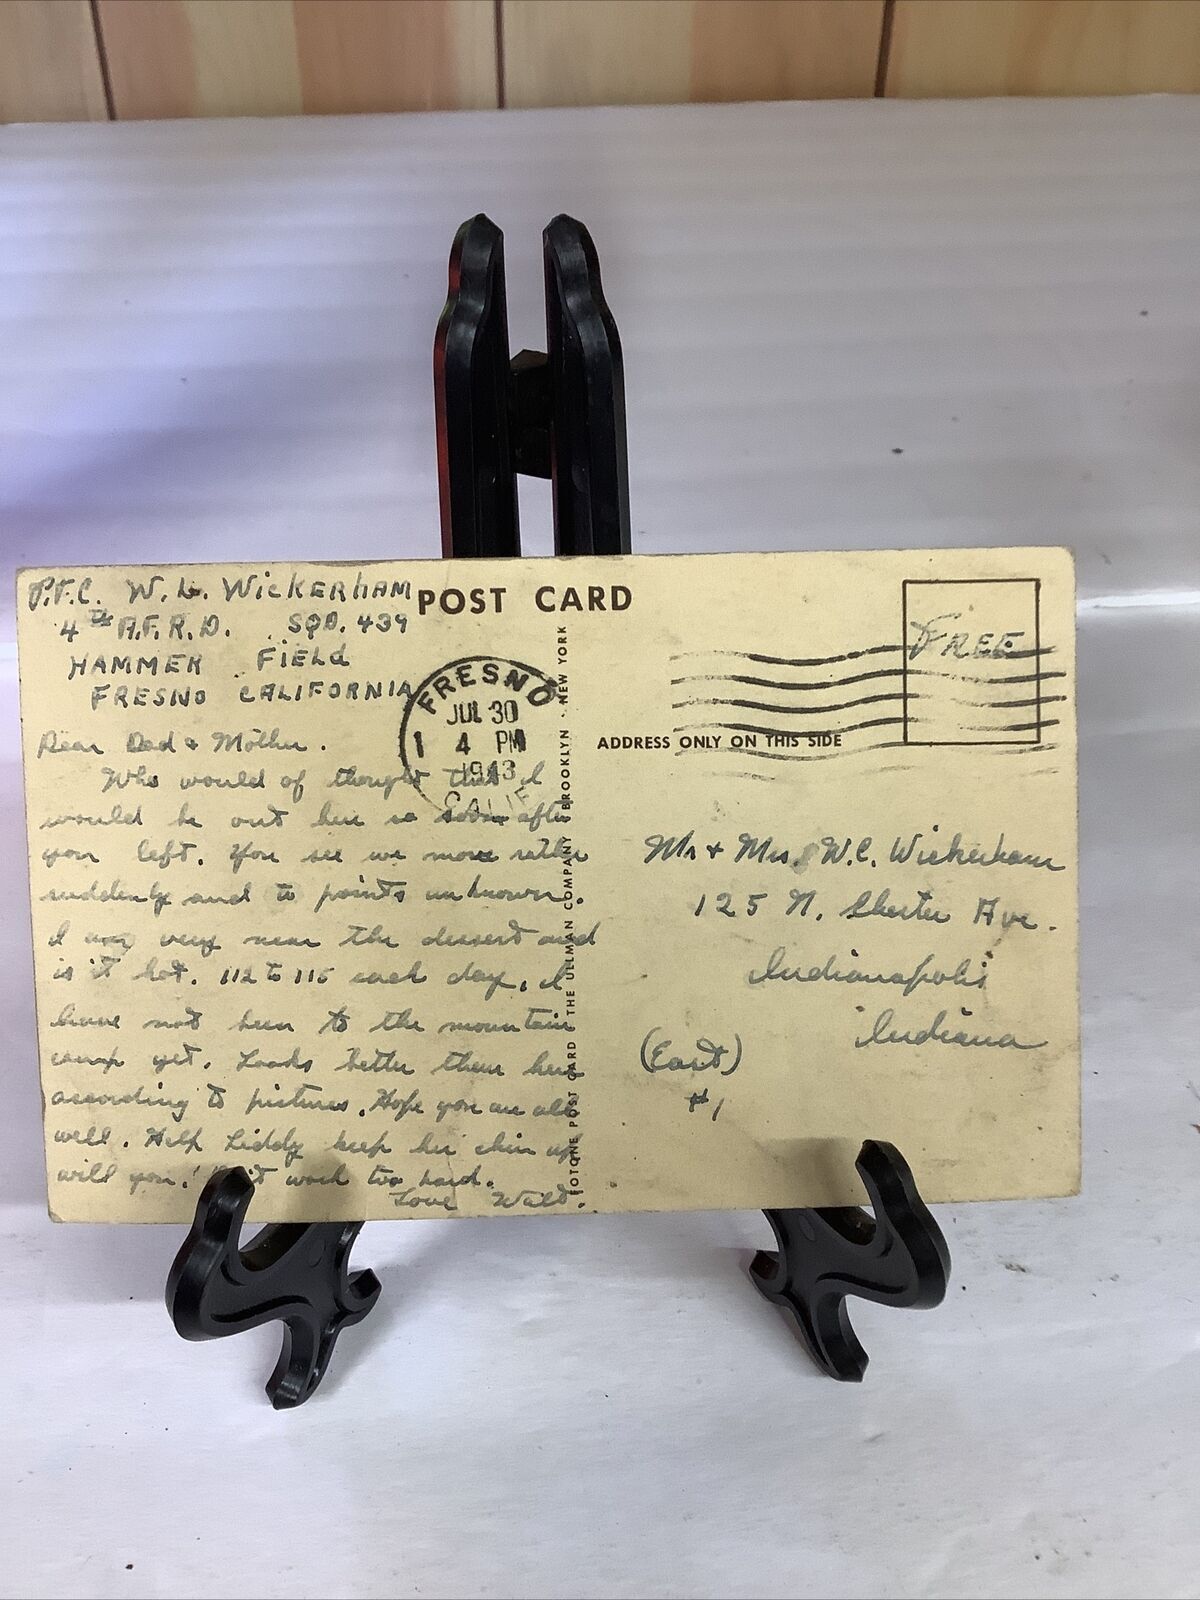 P.F.C. W. L. Wickerham
4TH A.F.R.D. SQD. 439
HAMMER FIELD
FRESNO CALIFORNIA
POST CARD
FREE
FRESNO
JUL 30
4 PM
1943
CALIF
ADDRESS ONLY ON THIS SIDE
Dear Dad & Mother.
Who would of thought that I
would be out here so soon after
you left. You see we move rather
suddenly and to points unknown.
I am very near the dessert and
is it hot. 112 to 115 each day, I
have not been to the mountain
camp yet. Looks better then here
according to pictures. Hope you are all
well. Help Liddy keep her chin up
will you! work too hard.
Love Walt.
FOTONE POST CARD THE ULLMAN COMPANY BROOKLYN - NEW YORK
Mr & Mrs. W.C. Wickerham
125 N. Chester Ave.
Indianapolis
Indiana
(East)
#1